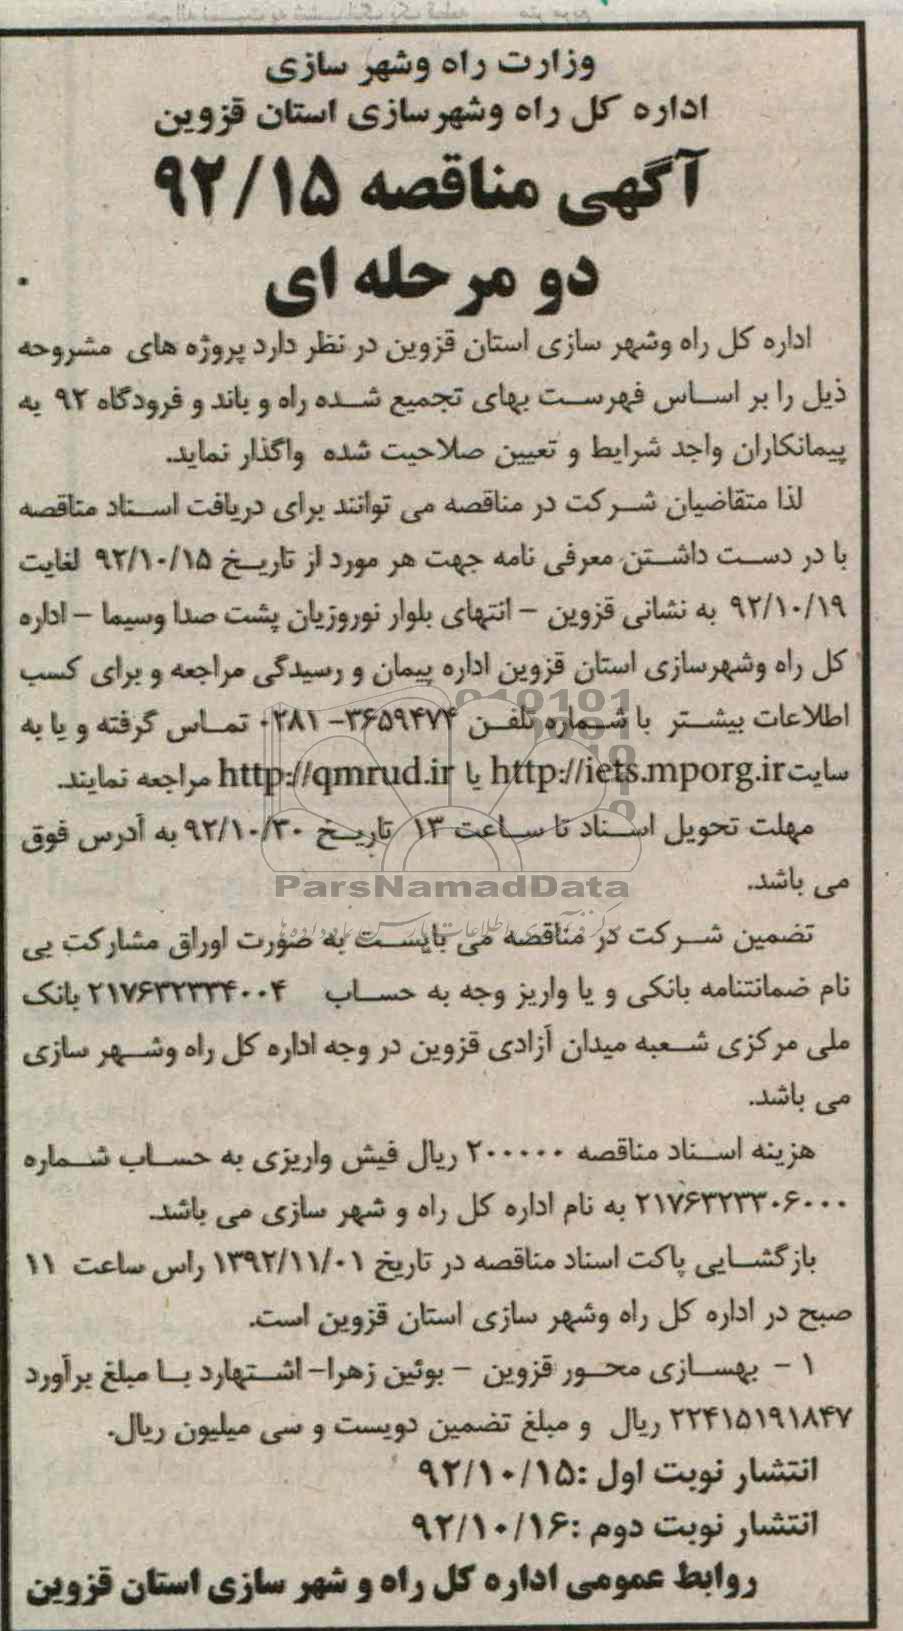 وزارت راه وشهر سازی
اداره کل راه وشهرسازی استان قزوین
آگهی مناقصه ۹۲/۱۵
دو مرحله ای
اداره کل راه وشهر سازی استان قزوین در نظر دارد پروژه های مشروحه
ذیل را بر اساس فهرست بهای تجمیع شده راه و باند و فرودگاه ۹۲ به
پیمانکاران واجد شرایط و تعیین صلاحیت شده واگذار نماید.
لذا متقاضیان شرکت در مناقصه می توانند برای دریافت اسناد مناقصه
با در دست داشتن معرفی نامه جهت هر مورد از تاریخ ۹۲/۱۰/۱۵ لغایت
۹۲/۱۰/۱۹ به نشانی قزوین – انتهای بلوار نوروزیان پشت صدا وسیما – اداره
کل راه وشهرسازی استان قزوین اداره پیمان و رسیدگی مراجعه و برای کسب
اطلاعات بیشتر با شماره تلفن ۳۶۵۹۴۷۴–۰۲۸۱ تماس گرفته و یا به
سایت http://iets.mporg.ir یا http://qmrud.ir مراجعه نمایند.
مهلت تحویل اسناد تا ساعت ۱۳ تاریخ ۹۲/۱۰/۳۰ به آدرس فوق
می باشد.
ParsNamadData
تضمین شرکت در مناقصه می بایست به صورت اوراق مشارکت بی
نام ضمانتنامه بانکی و یا واریز وجه به حساب ۲۱۷۶۳۲۳۳۴۰۰۴ بانک
ملی مرکزی شعبه میدان آزادی قزوین در وجه اداره کل راه وشهر سازی
می باشد.
هزینه اسناد مناقصه ۲۰۰۰۰۰ ریال فیش واریزی به حساب شماره
۲۱۷۶۳۲۳۳۰۶۰۰۰ به نام اداره کل راه و شهر سازی می باشد.
بازگشایی پاکت اسناد مناقصه در تاریخ ۱۳۹۲/۱۱/۰۱ راس ساعت ۱۱
صبح در اداره کل راه وشهر سازی استان قزوین است.
۱ – بهسازی محور قزوین – بوئین زهرا– اشتهارد با مبلغ برآورد
۲۲۴۱۵۱۹۱۸۴۷ ریال و مبلغ تضمین دویست و سی میلیون ریال.
انتشار نوبت اول :۹۲/۱۰/۱۵
انتشار نوبت دوم :۹۲/۱۰/۱۶
روابط عمومی اداره کل راه و شهر سازی استان قزوین